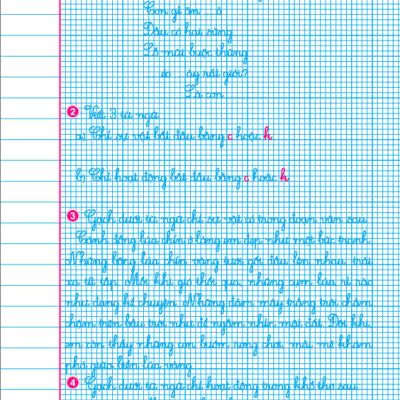 Con gì ăn cỏ
Đầu có hai sừng
Lỗ mũi buộc thừng
cày rất giỏi?
Là con
2 Viết 3 từ ngữ
a) Chỉ sự vật bắt đầu bằng c hoặc k
b) Chỉ hoạt động bắt đầu bằng c hoặc k
3 Gạch dưới từ ngữ chỉ sự vật có trong đoạn văn sau
Cánh đồng lúa chín ở làng em đẹp như một bức tranh.
Những bông lúa chín vàng tươi gối đầu lên nhau, trải
xa tít tắp. Mỗi khi gió thổi qua, những cụm lúa rì rào
như đang kể chuyện. Những đám mây trắng trôi chầm
chậm trên bầu trời như để ngắm nhìn mặt đất. Đôi khi,
em còn thấy những con bướm rong chơi, mải mê khám
phá giữa biển lúa vàng.
4 Gạch dưới từ ngữ chỉ hoạt động trong khổ thơ sau